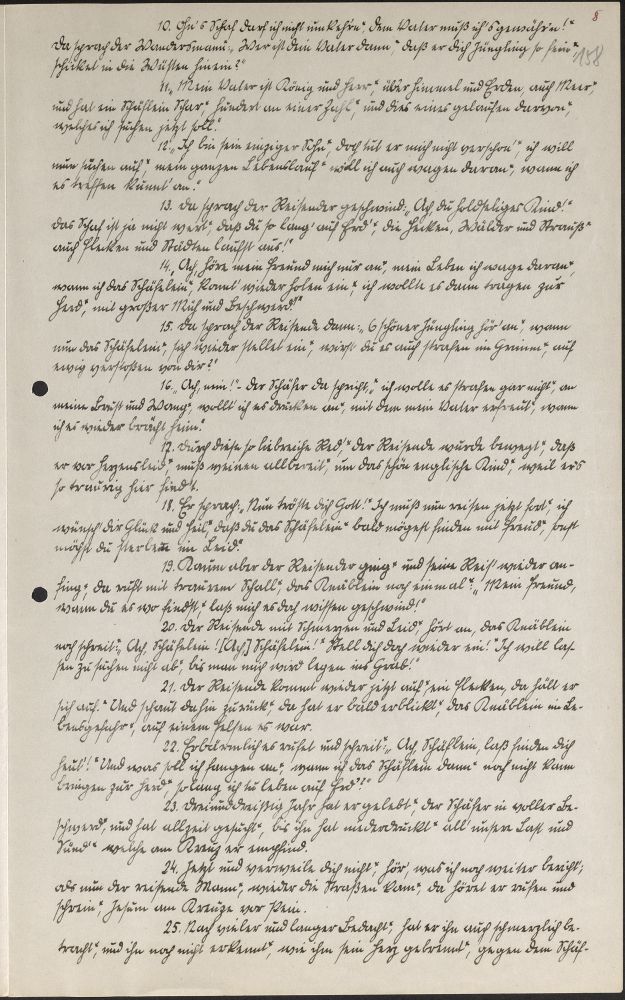 8
158
10. Ohn's Schaf darf ich nicht umkehrn" dem Vater muß ich's gewährn!"
Da sprach der Wandersmann: „Wer ist dein Vater dann", daß er dich Jüngling so fein"
schicket in die Wüsten hinein?"
11. „Mein Vater ist König und Herr", über Himmel und Erden, auch Meer",
und hat ein Schäflein Schar" hundert an einer Zahl", und dies eines geloffen darvon",
welches ich suchen jetzt soll."
12. „Ich bin sein einziger Sohn" doch tut er mich nicht verschon'" ich will
nun suchen auch" mein ganzen Lebenslauf" will ich auch wagen daran", wann ich
es treffen kunnt an."
13. Da sprach der Reisender geschwind: „Ach, du holdseliges Kind!"
das Schaf ist ja nicht wert", daß du so lang' auf Erd'", die Hecken, Wälder und Strauß"
auch Flecken und Städten laufst aus!"
14. „Ach, höre mein Freund mich nur an", mein Leben ich wage daran"
wann ich das Schäfelein", konnt' wieder holen ein", ich wollte es dann tragen zur
Herd", mit großer Müh und Beschwerd!"
15. Da sprach der Reisende dann: „O schöner Jüngling hör' an", wann
nun das Schäfelein", sich wieder stellet ein", wirst du es auch strafen im Grimm", auf
ewig verstoßen von dir?"
16. „Ach, nein!" - der Schäfer da spricht", ich wolle es strafen gar nicht", an
meine Brust und Wang", wollt' ich es drucken an", mit dem mein Vater erfreut", wann
ich es wieder brächt heim."
17. Durch diese so liebreiche Red'" der Reisende wurde bewegt", daß
er vor Herzensleid", muß weinen allbereit", um das schön englische Kind", weil er's
so traurig hier find't.
18. Er sprach: „Nun tröste dich Gott!" Ich muß nun reisen jetzt fort", ich
wünsch' dir Glück und Heil", daß du das Schäfelein" bald mögest finden mit Freud", sonst
möchst du sterben im Leid."
19. Kaum aber der Reisender ging" und seine Reis' wieder an-
fing" da ruft mit traurem Schall", das Knäblein noch einmal": „Mein Freund,
wann du es wo findst", laß mich es doch wissen geschwind!"
20. Der Reisende mit Schmerzen und Leid", hört an, das Knäblein
noch schreit: „Ach, Schäfelein! [Ach] Schäfelein!" Stell dich doch wieder ein!" Ich will las-
sen zu suchen nicht ab", bis man mich wird legen ins Grab!"
21. Der Reisende kommt wieder jetzt auf" ein Flecken, da hält er
sich auf." Und schaut dahin zurück", da hat er bald erblickt", das Knäblein in Le-
bensgefahr", auf einem Felsen es war.
22. Erbärmlich es rufet und schreit: „Ach, Schäflein, laß finden dich
heut!" Und was soll ich fangen an", wann ich das Schäflein dann" noch nicht kann
bringen zur Herd", so lang ich tu leben auf Erd'!"
23. Dreiunddreißig Jahr hat er gelebt", der Schäfer in voller Be-
schwerd, und hat allzeit gesucht", bis ihn hat niederdruckt" all' unsere Last und
Sünd'" welche am Kreuz er empfind.
24. Jetzt und verweile dich nicht", hör', was ich noch weiter bericht";
als nun der reisende Mann", wieder die Straßen kam", da höret er rufen und
schrein" Jesum am Kreuze vor Pein.
25. Nach vieler und langer Bedacht", hat er ihn auch schmerzlich be-
tracht", und ihn noch nicht erkennt", wie ihm sein Herz gebrennt", gegen dem Schäf-